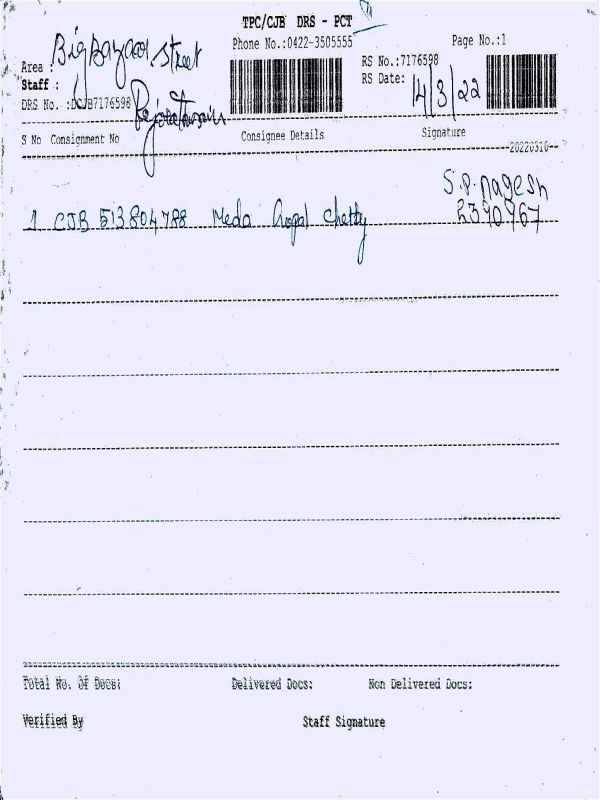 TPC/CJB DRS - PCT
Phone No.:0422-3505555
Page No.:1
Area : Big Bazaar Street
RS No.:7176598
Staff :
RS Date: 14/3/22
DRS No. :DCJB7176598
S No Consignment No Consignee Details Signature
S.P. Nagesh
1 CJB 513804788 Meda Gopal Chetty
Total No. Of Docs: Delivered Docs: Non Delivered Docs:
Verified By Staff Signature